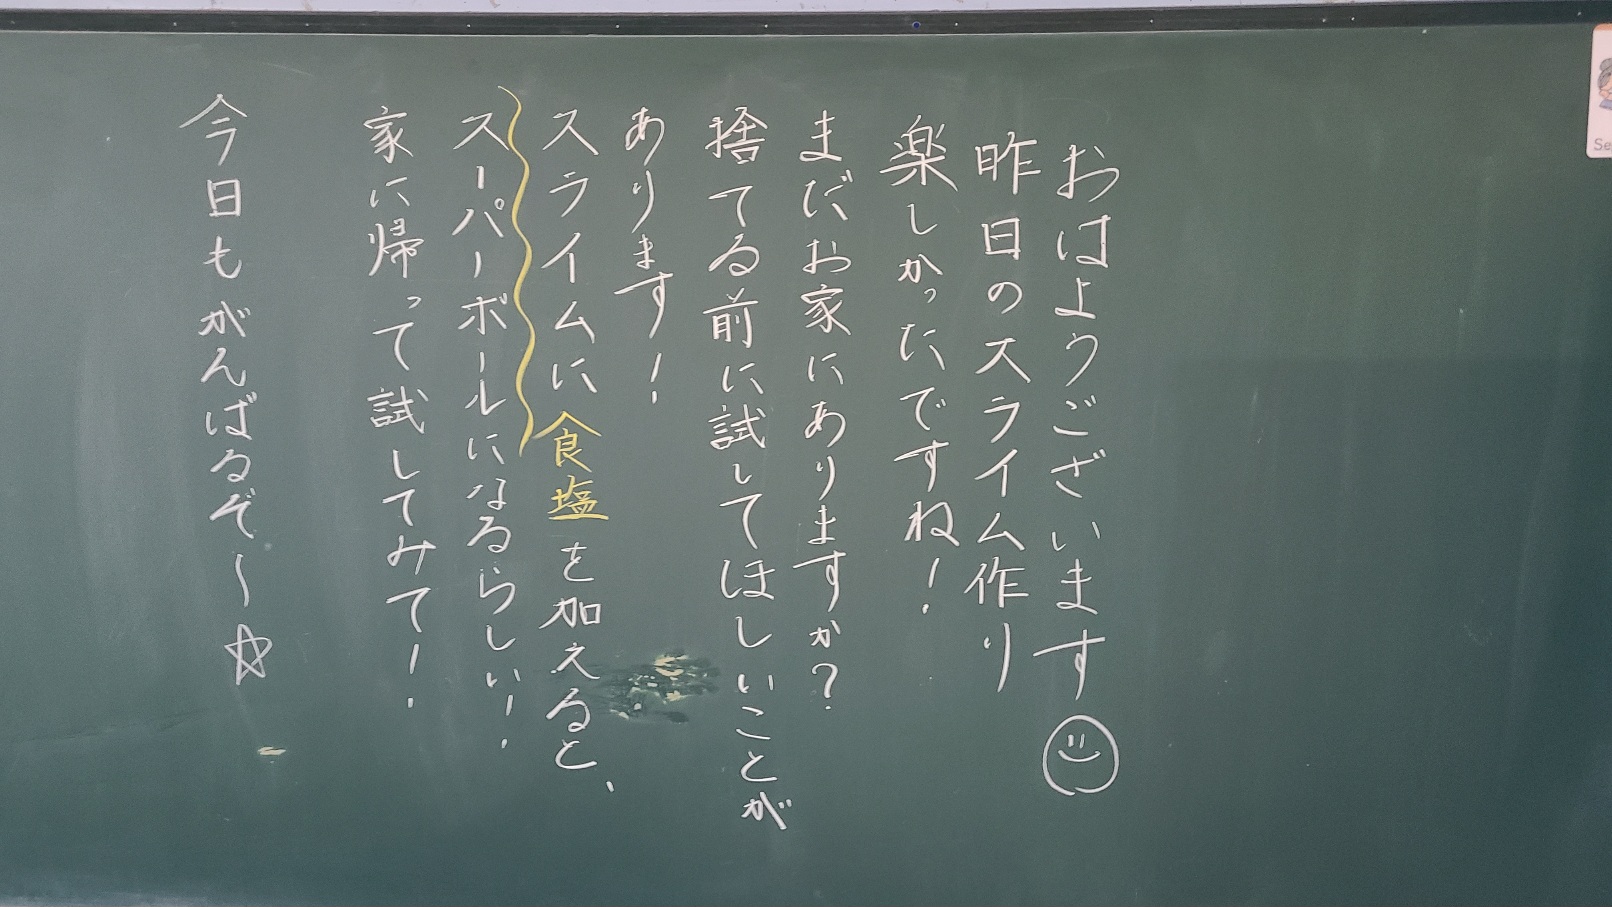 おはようございます
昨日のスライム作り
楽しかったですね!
まだお家にありますか?
捨てる前に試してほしいことが
あります!
スライムに食塩を加えると、
スーパーボールになるらしい!
家に帰って試してみて!
今日もがんばるぞ〜☆
Se